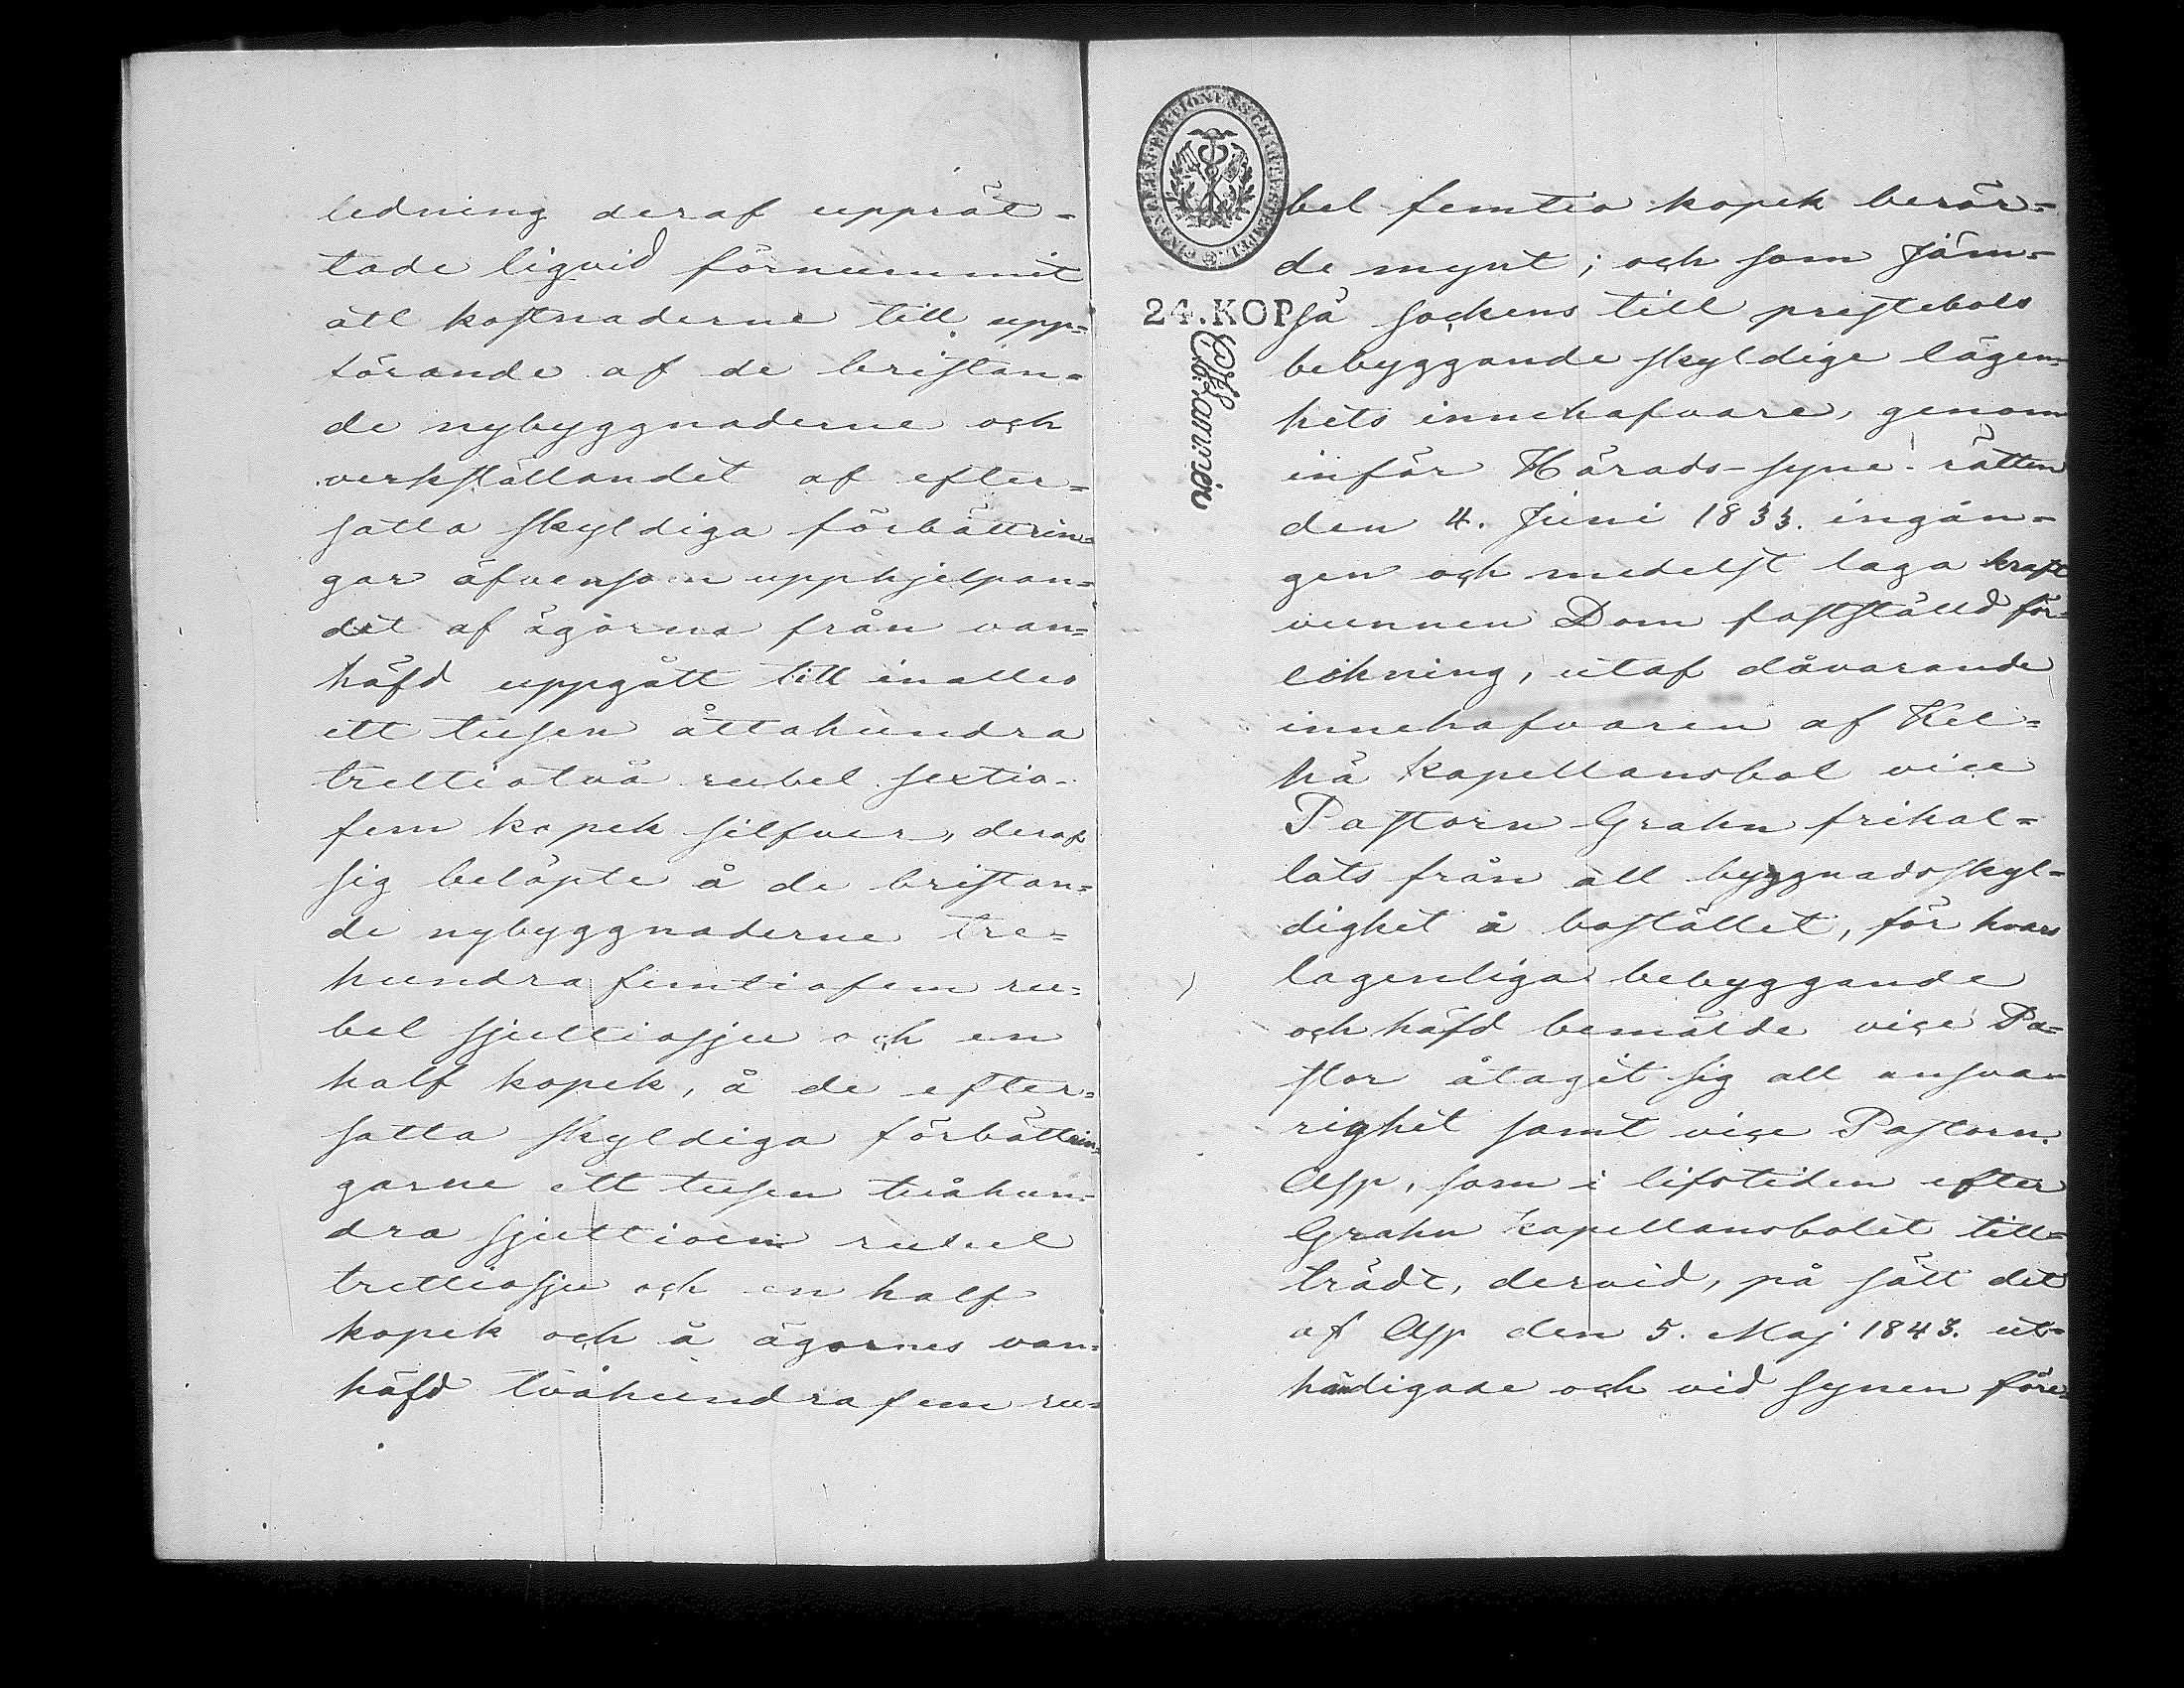 ledning deraf upprät-
tade liqvid förnummit
att kostnaderne till upp-
förande af de bristan-
de nybyggnaderne och
verkställandet af efter-
satta skyldiga förbättrin-
gar äfvensom upphjelpan-
det af ägorna från van-
häfd uppgått till inalles
ett tusen åttahundra
trettiotvå rubel sextio-
fem kopek silfver, deraf
sig belöpte å de bristan-
de nybyggnaderne tre-
hundra femtiofem ru-
bel sjuttiosju och en
half kopek, å de efter-
satta skyldiga förbättrin-
garne ett tusen tvåhun-
dra sjuttioen rubel
trettiosju och en half
kopek och å ägornes van-
häfd tvåhundrafem ru-
24.KOP
bel femtio kopek berör-
de mynt; och som Jäm-
sä sockens till prestebols
bebyggande skyldige lägen-
hets innehafvare, genom
inför Härads-syne-rätten
den 4. Juni 1833. ingån-
gen och medelst laga kraft
vunnen Dom fastställd för-
likning, utaf dåvarande
innehafvaren af Kel-
hä kapellansbol vice
Pastorn Grahn frikal-
lats från all byggnadsskyl-
dighet å bostället, för hvars
lagenliga bebyggande
och häfd bemälde vice Pa-
stor åtagit sig all ansva-
righet samt vice Pastorn
Asp, som i lifstiden efter
Grahn kapellansbolet till-
trädt, dervid, på sätt det
af Asp den 5. Maj 1843. ut-
händigade och vid synen före-